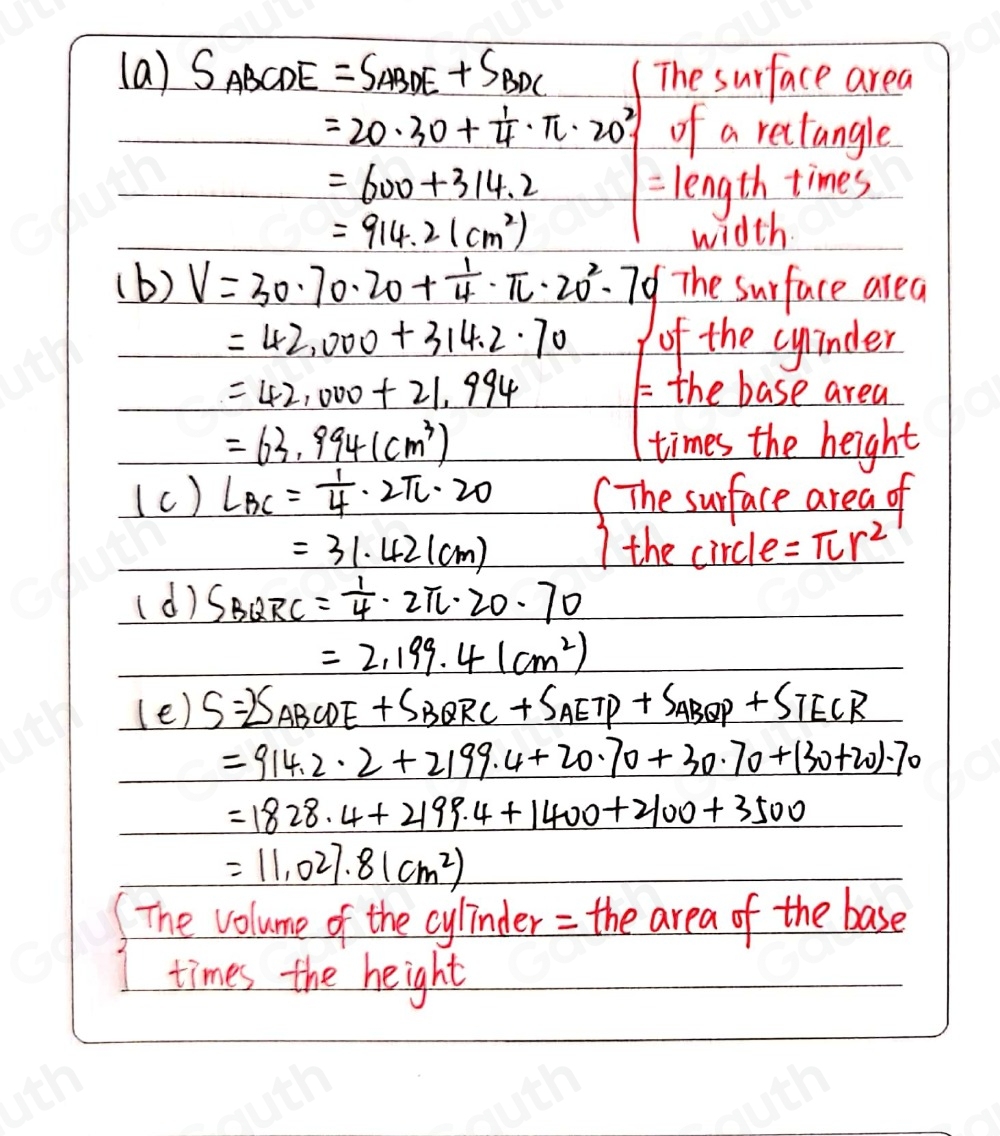 (a) S ABCDE = SABDE + SBDC
= 20·30 + 1/4 · π · 20²
= 600 + 314.2
= 914.2 (cm²)
{ The surface area
of a rectangle
= length times
width.
(b) V = 30·70·20 + 1/4 · π · 20² · 70
= 42,000 + 314.2 · 70
= 42,000 + 21,994
= 63,994 (cm³)
{ The surface area
of the cylinder
= the base area
times the height
(c) LBC = 1/4 · 2π · 20
= 31.42 (cm)
{ The surface area of
the circle = πr²
(d) SBQRC = 1/4 · 2π · 20 · 70
= 2,199.4 (cm²)
(e) S = 2SABCDE + SBQRC + SAETP + SABQP + STECR
= 914.2 · 2 + 2199.4 + 20·70 + 30·70 + (30+20)·70
= 1828.4 + 2199.4 + 1400 + 2100 + 3500
= 11,027.8 (cm²)
{ The volume of the cylinder = the area of the base
times the height
Gauth